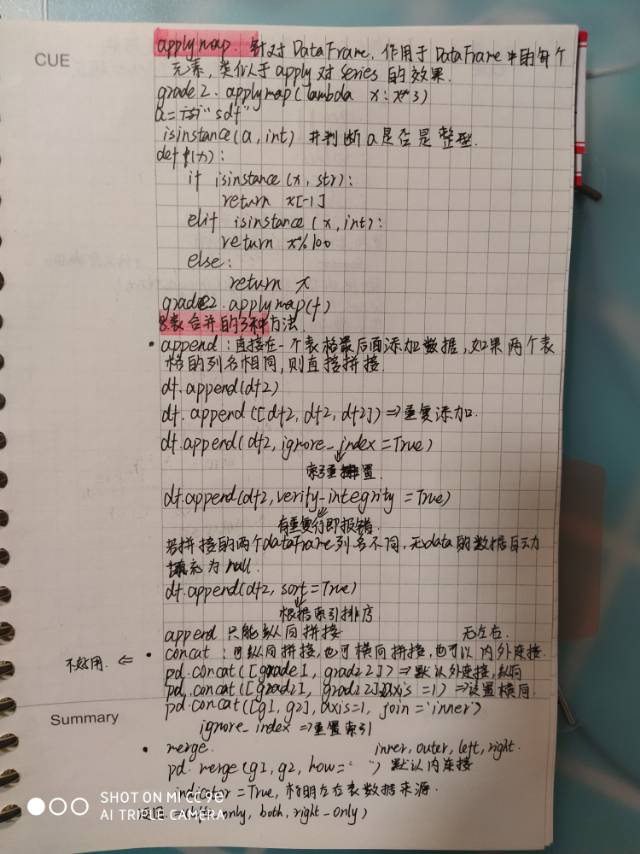 CUE
applymap. 针对DataFrame, 作用于DataFrame中的每个
元素, 类似于apply对series的效果.
grade2.applymap(lambda x: x*3)
a= "sdf"
isinstance(a, int) #判断a是否是整型.
def f(x):
if isinstance(x, str):
return x[-1]
elif isinstance(x, int):
return x%100
else:
return x
grade2.applymap(f)
表合并的3种方法
• append: 直接在一个表格最后面添加数据, 如果两个表
格的列名相同, 则直接拼接.
df.append(df2)
df.append([df2, df2, df2]) ⇒重复添加.
df.append(df2, ignore_index=True)
索引重置.
df.append(df2, verify_integrity=True)
有重复行即报错.
若拼接的两个dataFrame列名不同, 无data的数据自动
填充为null.
df.append(df2, sort=True)
根据索引排序
append 只能纵向拼接 无左右.
不好用. ⇐ • concat: 可纵向拼接, 也可横向拼接, 也可以内外连接
pd.concat([grade1, grade2]) ⇒默认外连接, 纵向
pd.concat([grade1, grade2], axis=1) ⇒设置横向.
pd.concat([g1, g2], axis=1, join='inner')
Summary
ignore_index ⇒重置索引
• merge. inner, outer, left, right.
pd.merge(g1, g2, how=" ") 默认内连接
indicator=True, 标明左右表数据来源.
only, both, right_only)
SHOT ON MI CC 9e
AI TRIPLE CAMERA